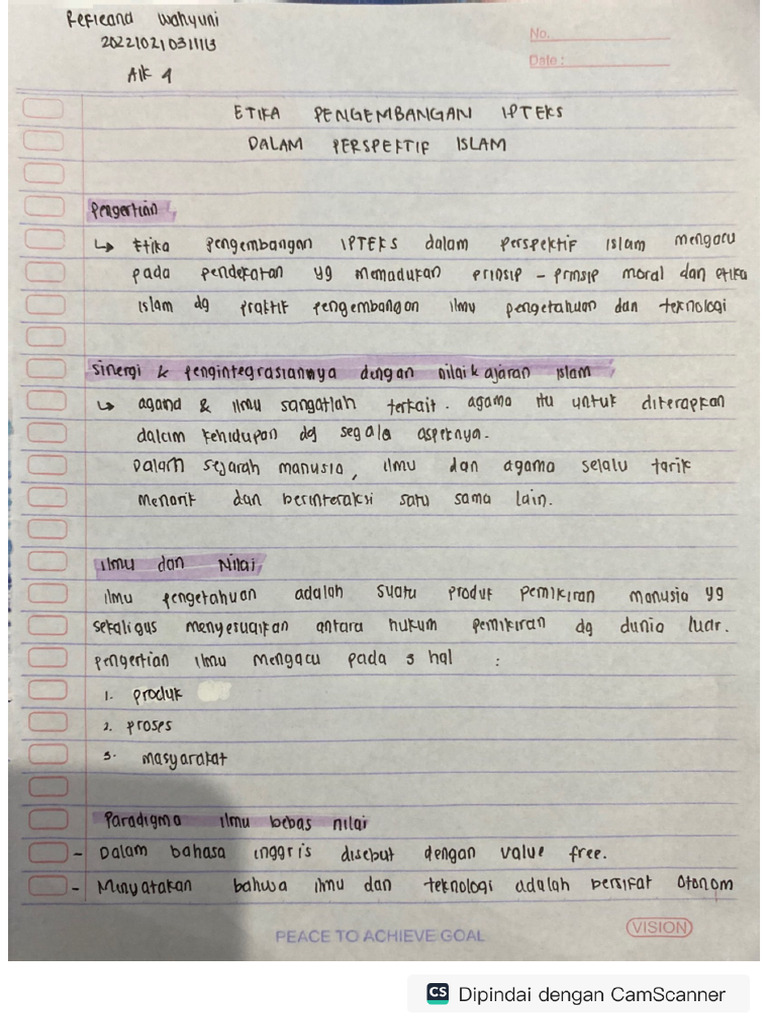 Refieand Wahyuni
202210210311113
AIK 4
No.
Date :
ETIKA PENGEMBANGAN IPTEKS
DALAM PERSPEKTIF ISLAM
Pengertian
↳ Etika pengembangan IPTEKS dalam perspektif islam mengacu
pada pendekatan yg memadukan prinsip - prinsip moral dan etika
islam dg praktik pengembangan ilmu pengetahuan dan teknologi
sinergi & pengintegrasiannya dengan nilai & ajaran islam
↳ agama & ilmu sangatlah terkait. agama itu untuk diterapkan
dalam kehidupan dg segala aspeknya.
Dalam sejarah manusia, ilmu dan agama selalu tarik
menarik dan berinteraksi satu sama lain.
ilmu dan Nilai
ilmu pengetahuan adalah suatu produk pemikiran manusia yg
sekaligus menyesuaikan antara hukum pemikiran dg dunia luar.
pengertian ilmu mengacu pada 3 hal :
1. produk
2. proses
3. masyarakat
Paradigma ilmu bebas nilai
- Dalam bahasa inggris disebut dengan value free.
- Menyatakan bahwa ilmu dan teknologi adalah bersifat otonom
PEACE TO ACHIEVE GOAL
VISION
CS Dipindai dengan CamScanner